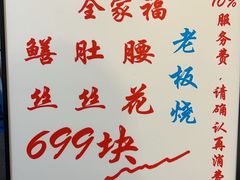 全家福
鳝丝
肚丝
腰花
老板烧
699块
10%服务费,请确认再消费